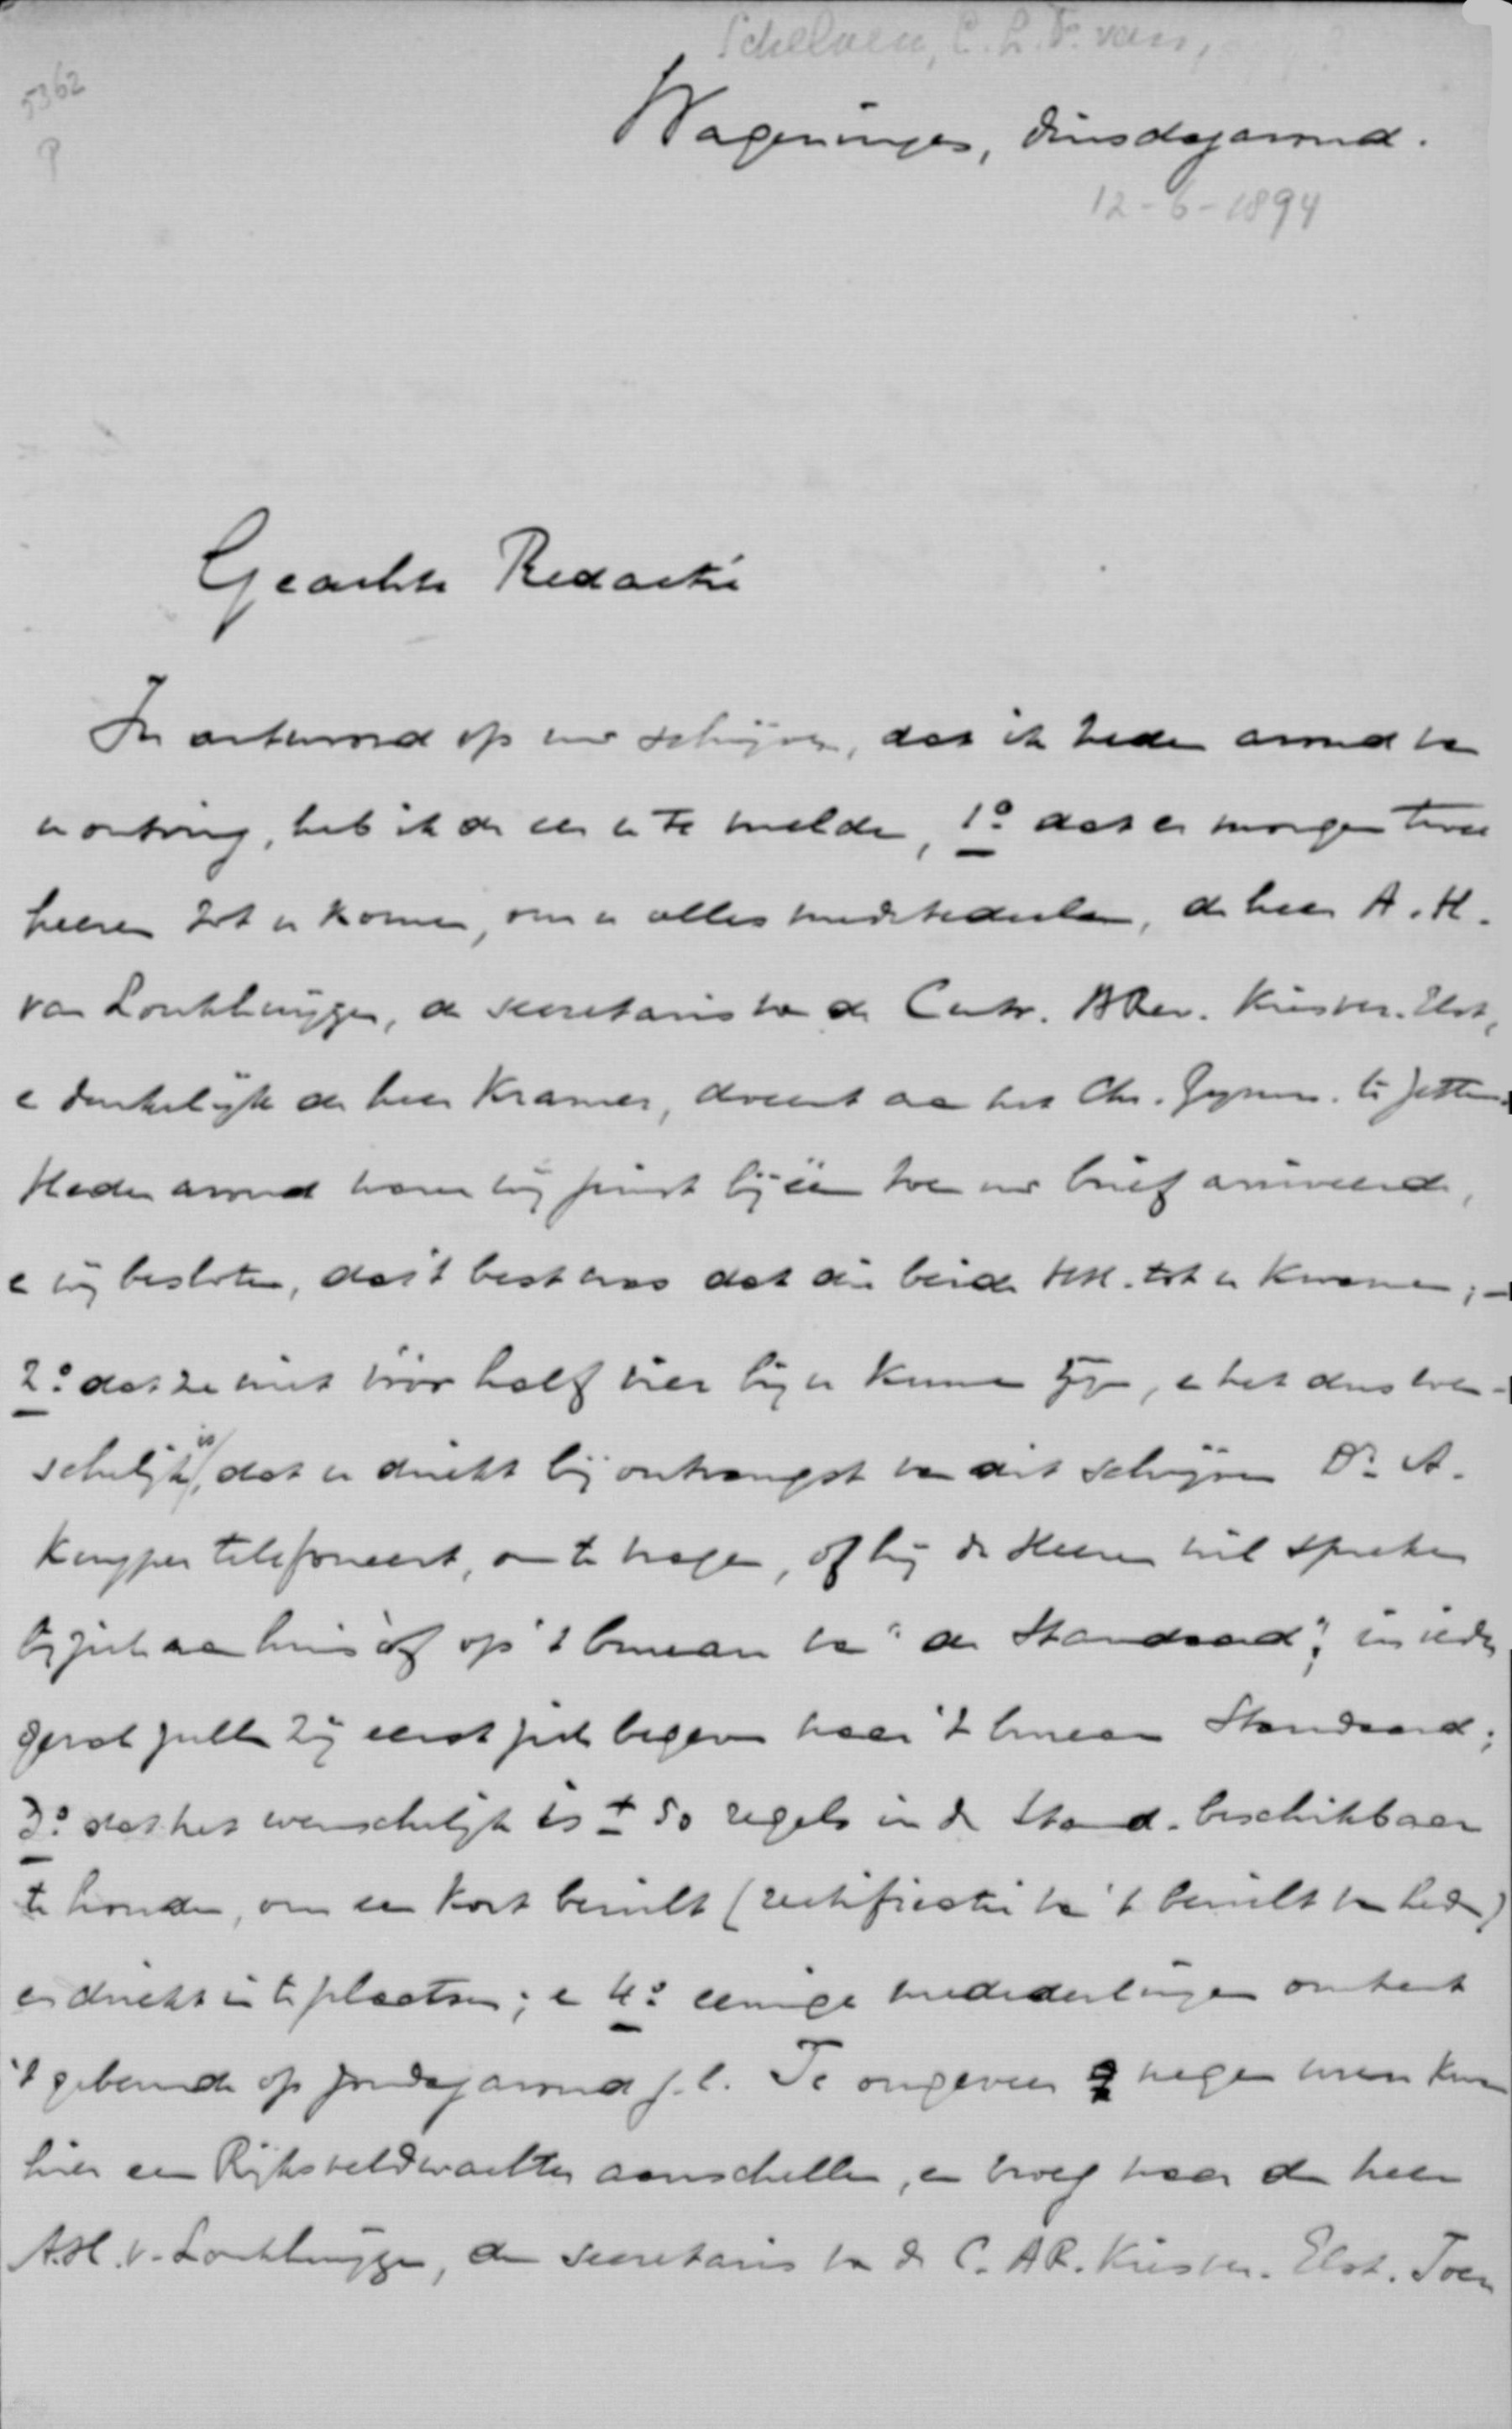 Schelven, C. L. F. van,
5362
P
Wageningen, dinsdagavond.
12-6-1894
Geachte Redactie
In antwoord op uw schrijven, dat ik heden avond van
u ontving, heb ik de eer u te melden, 1o dat er morgen twee
heeren tot u komen, om u alles mede te deelen, de heer A. H.
van Lonkhuijzen, de secretaris van de Centr. ARev. Kiesver. Elst,
en denkelijk de heer Kramer, docent aan het Chr. Gymn. te Zetten.
Heden avond waren wij juist bijeen toen uw brief arriveerde,
en wij besloten, dat 't best was dat die beide HH. tot u kwamen; –
2o dat ze niet vóór half vier bij u kunnen zijn, en het dus wen-
schelijk is, dat u direkt bij ontvangst van dit schrijven Dr. A.
Kuyper telefoneert, om te vragen, of hij de Heeren wil spreken
bij zich aan huis òf op 't bureau van "de Standaard"; in ieder
geval zullen zij eerst zich begeven naar 't bureau Standaard;
3o dat het wenschelijk is ± 50 regels in de Stand. beschikbaar
te houden, om een kort bericht (rectificatie van 't bericht van heden)
er direkt in te plaatsen; en 4o eenige mededeelingen omtrent
't gebeurde op zondagavond j.l. Te ongeveer negen uren kwam
hier een Rijksveldwachter aanschellen, en vroeg naar den heer
A.H. v. Lonkhuijzen, den secretaris van de C. AR. Kiesver. Elst. Toen